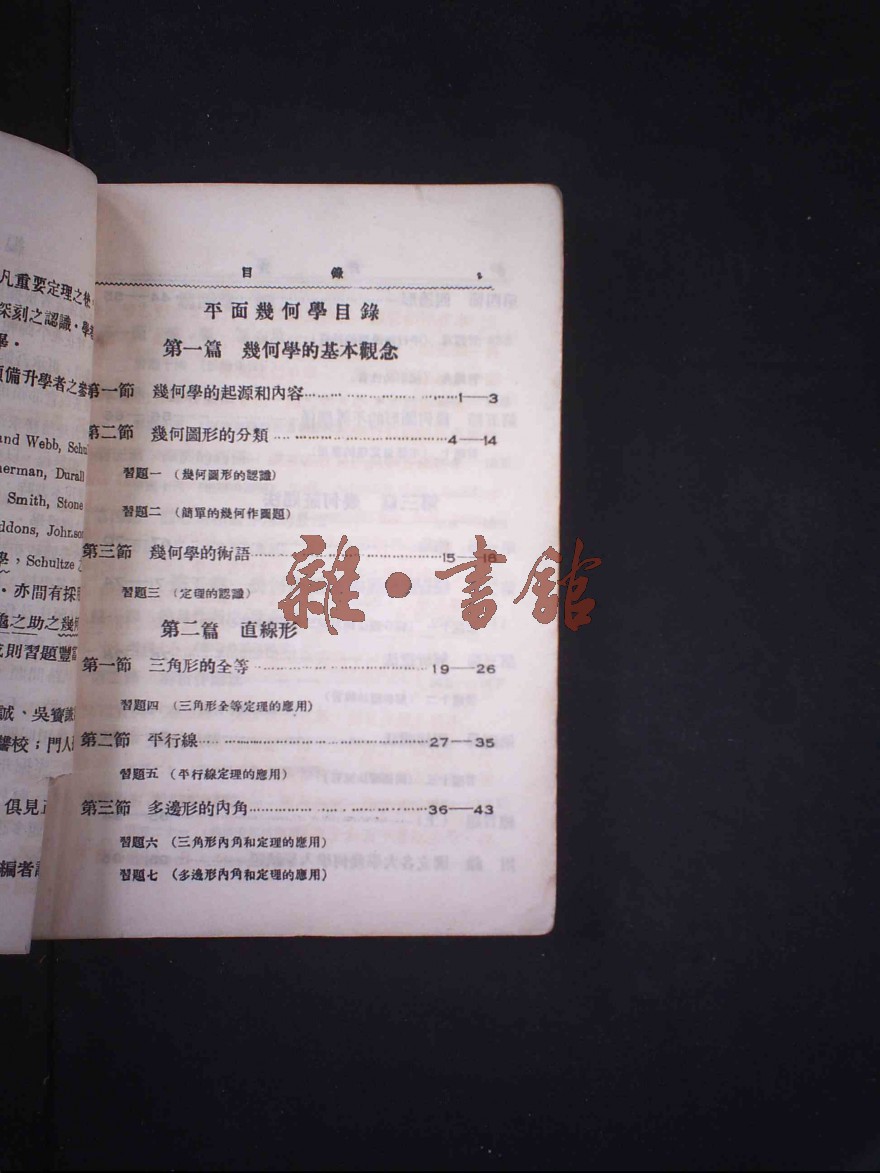 凡重要定理之
深刻之認識·學
畢·
預備升學者之參
and Webb, Schu
herman, Durall
Smith, Stone
ddons, Johnso
學，Schultze
·亦間有採
之助之幾
則習題豐
誠、吳寶
校；門人
俱見
編者
目 錄 1
平面幾何學目錄
第一篇 幾何學的基本觀念
第一節 幾何學的起源和內容 1—3
第二節 幾何圖形的分類 4—14
習題一 (幾何圖形的認識)
習題二 (簡單的幾何作圖題)
第三節 幾何學的術語 15—18
習題三 (定理的認識)
第二篇 直線形
第一節 三角形的全等 19—26
習題四 (三角形全等定理的應用)
第二節 平行線 27—35
習題五 (平行線定理的應用)
第三節 多邊形的內角 36—43
習題六 (三角形內角和定理的應用)
習題七 (多邊形內角和定理的應用)
雜·書館